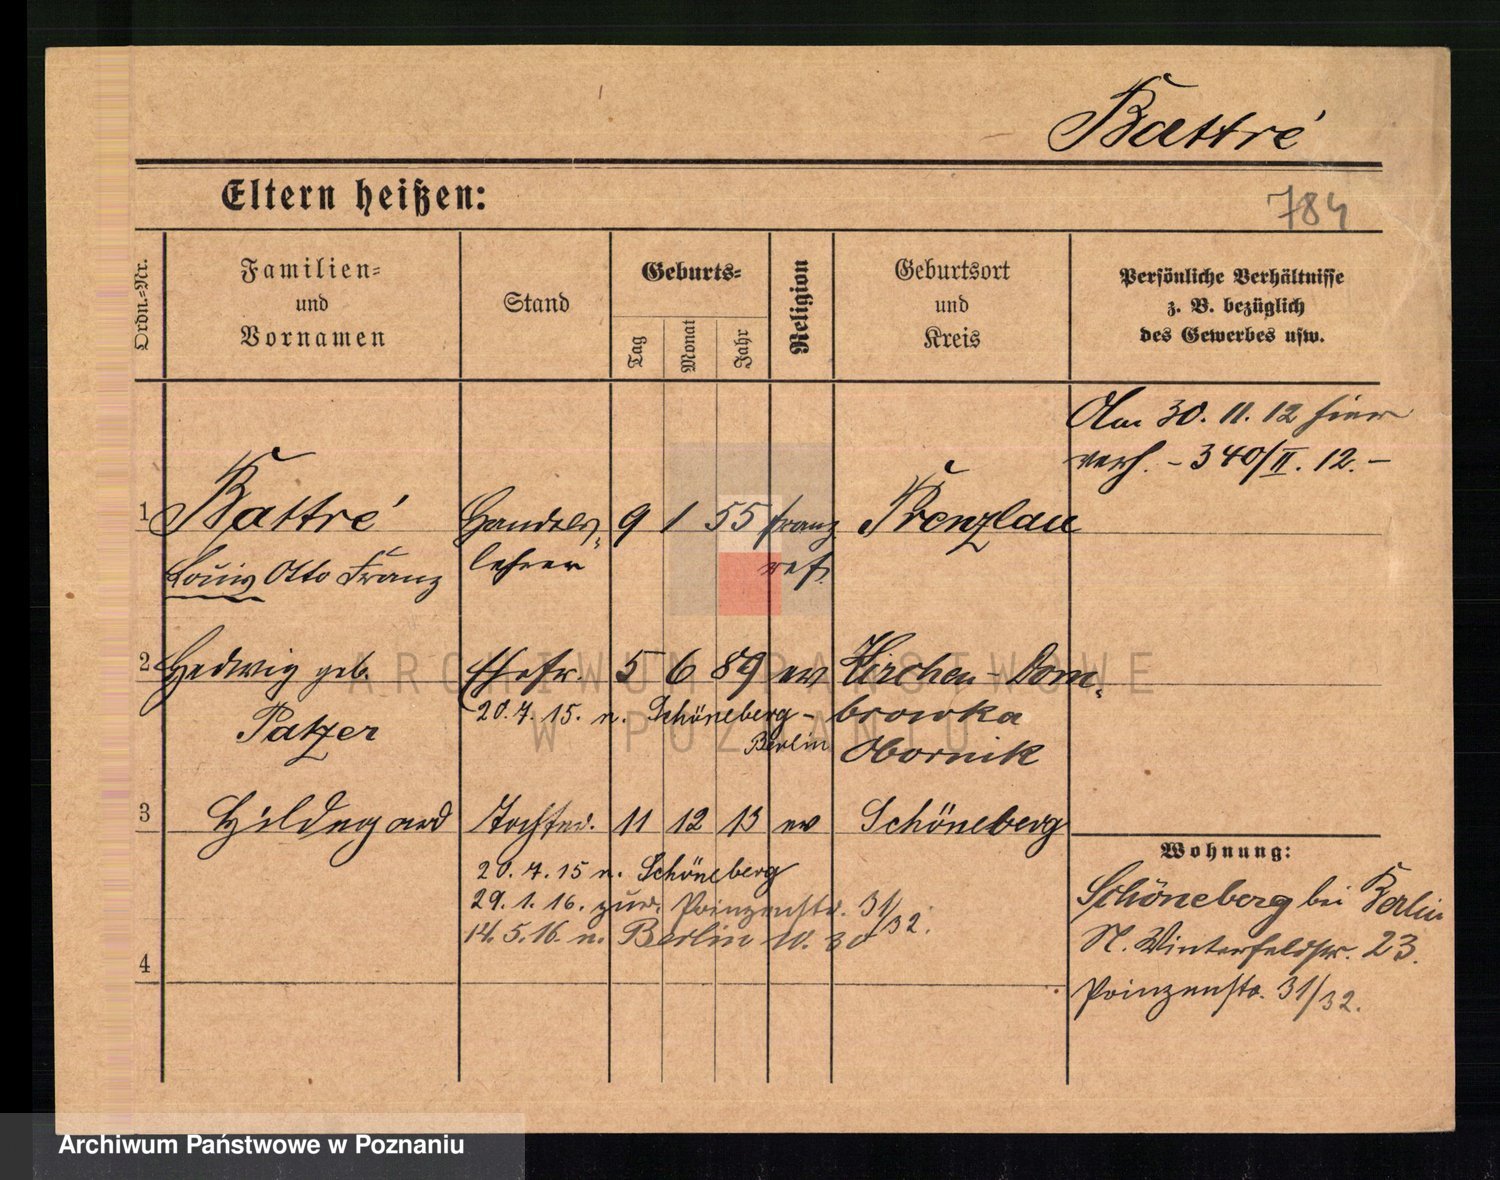 Battré
Eltern heißen:
784
Ordn.-Nr.
Familien-
und
Vornamen
Stand
Geburts-
Tag
Monat
Jahr
Religion
Geburtsort
und
Kreis
Persönliche Verhältnisse
z. B. bezüglich
des Gewerbes usw.
Am 30. 11. 12 hier
verh. – 340/II. 12. –
1 Battré Handels- 9 1 55 franz. Prenzlau
Louis Otto Franz lehrer ref.
2 Hedwig geb. Ehefr. 5 6 89 ev Kirchen-Dom-
20.7.15. n. Schöneberg- browka
Patzer Berlin Obornik
3 Hildegard Tochter. 11 12 13 ev Schöneberg
Wohnung:
20.7.15 n. Schöneberg
29.1.16. zur. Prinzenstr. 31/32.
14.5.16. n. Berlin W. 30
4
Schöneberg bei Berlin
N. Winterfeldstr. 23.
Prinzenstr. 31/32.
ARCHIWUM PAŃSTWOWE
W POZNANIU
Archiwum Państwowe w Poznaniu